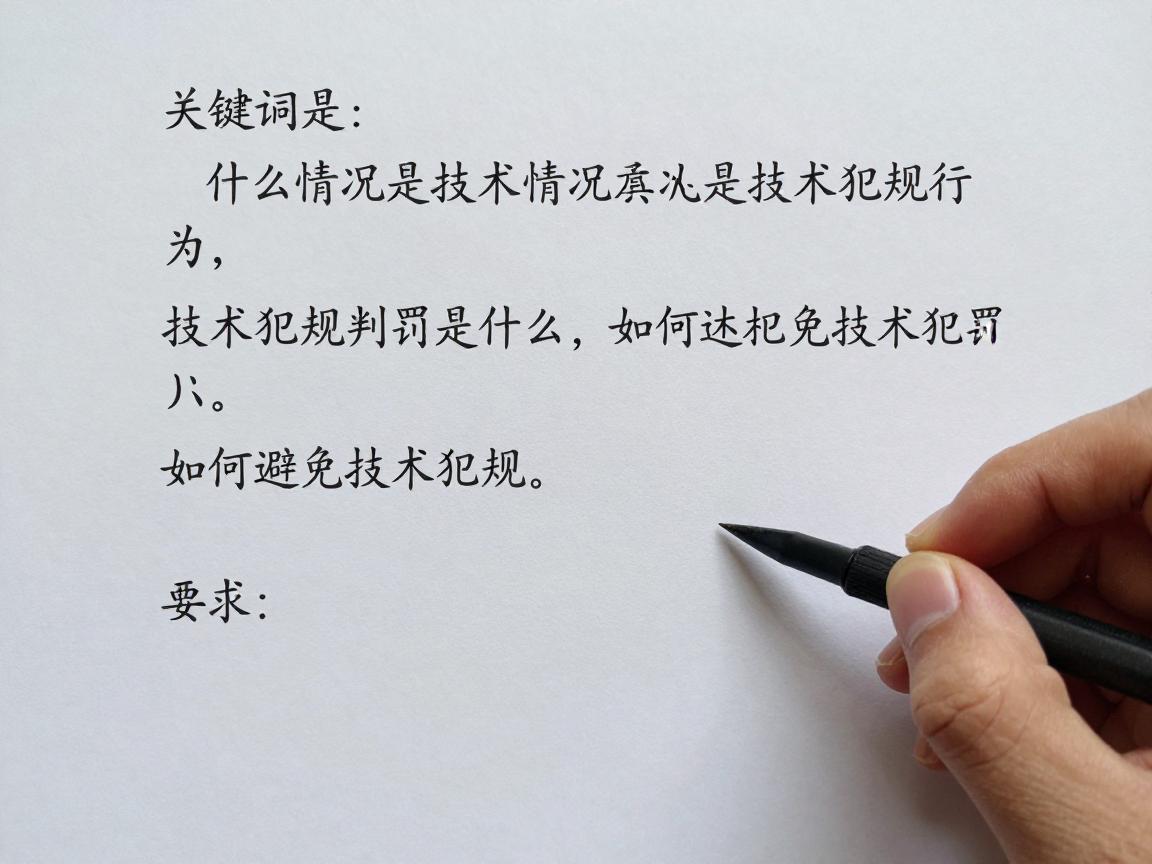 关键词是：
什么情况是技术情况是技术犯规行
为，
技术犯规判罚是什么，如何达免技术犯罚
。
如何避免技术犯规。
要求：